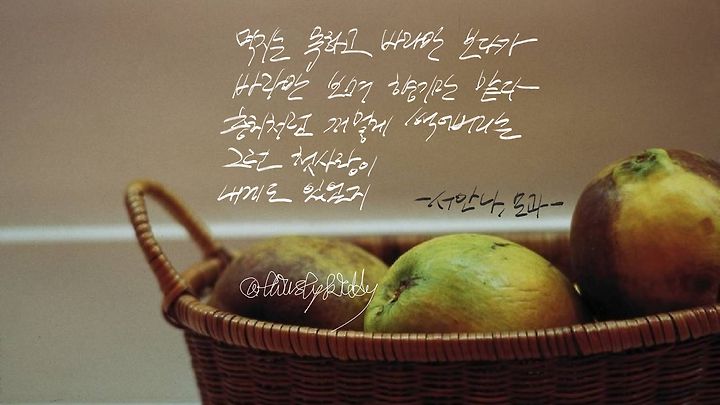 먹지는 못하고 바라만 보다가
바라만 보며 향기만 맡다
충치처럼 꺼멓게 썩어버리는
그런 첫사랑이
내게도 있었지
-서안나, 모과-